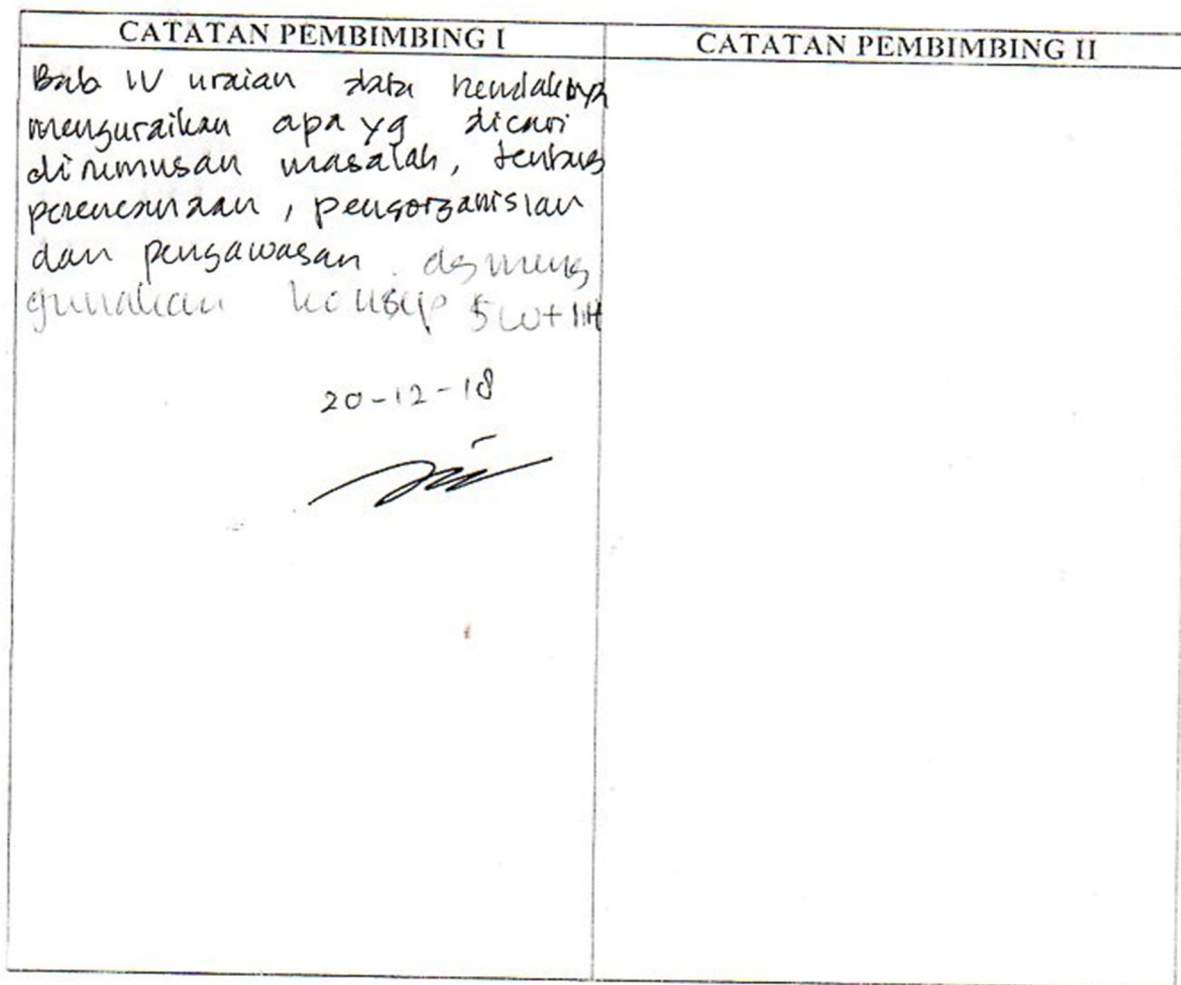 CATATAN PEMBIMBING I
CATATAN PEMBIMBING II
Bab IV uraian data hendaknya
menguraikan apa yg dicari
dirumusan masalah, tentang
perencanaan, pengorganisian
dan pengawasan. dg meng
gunakan konsep 5W+1H
20-12-18